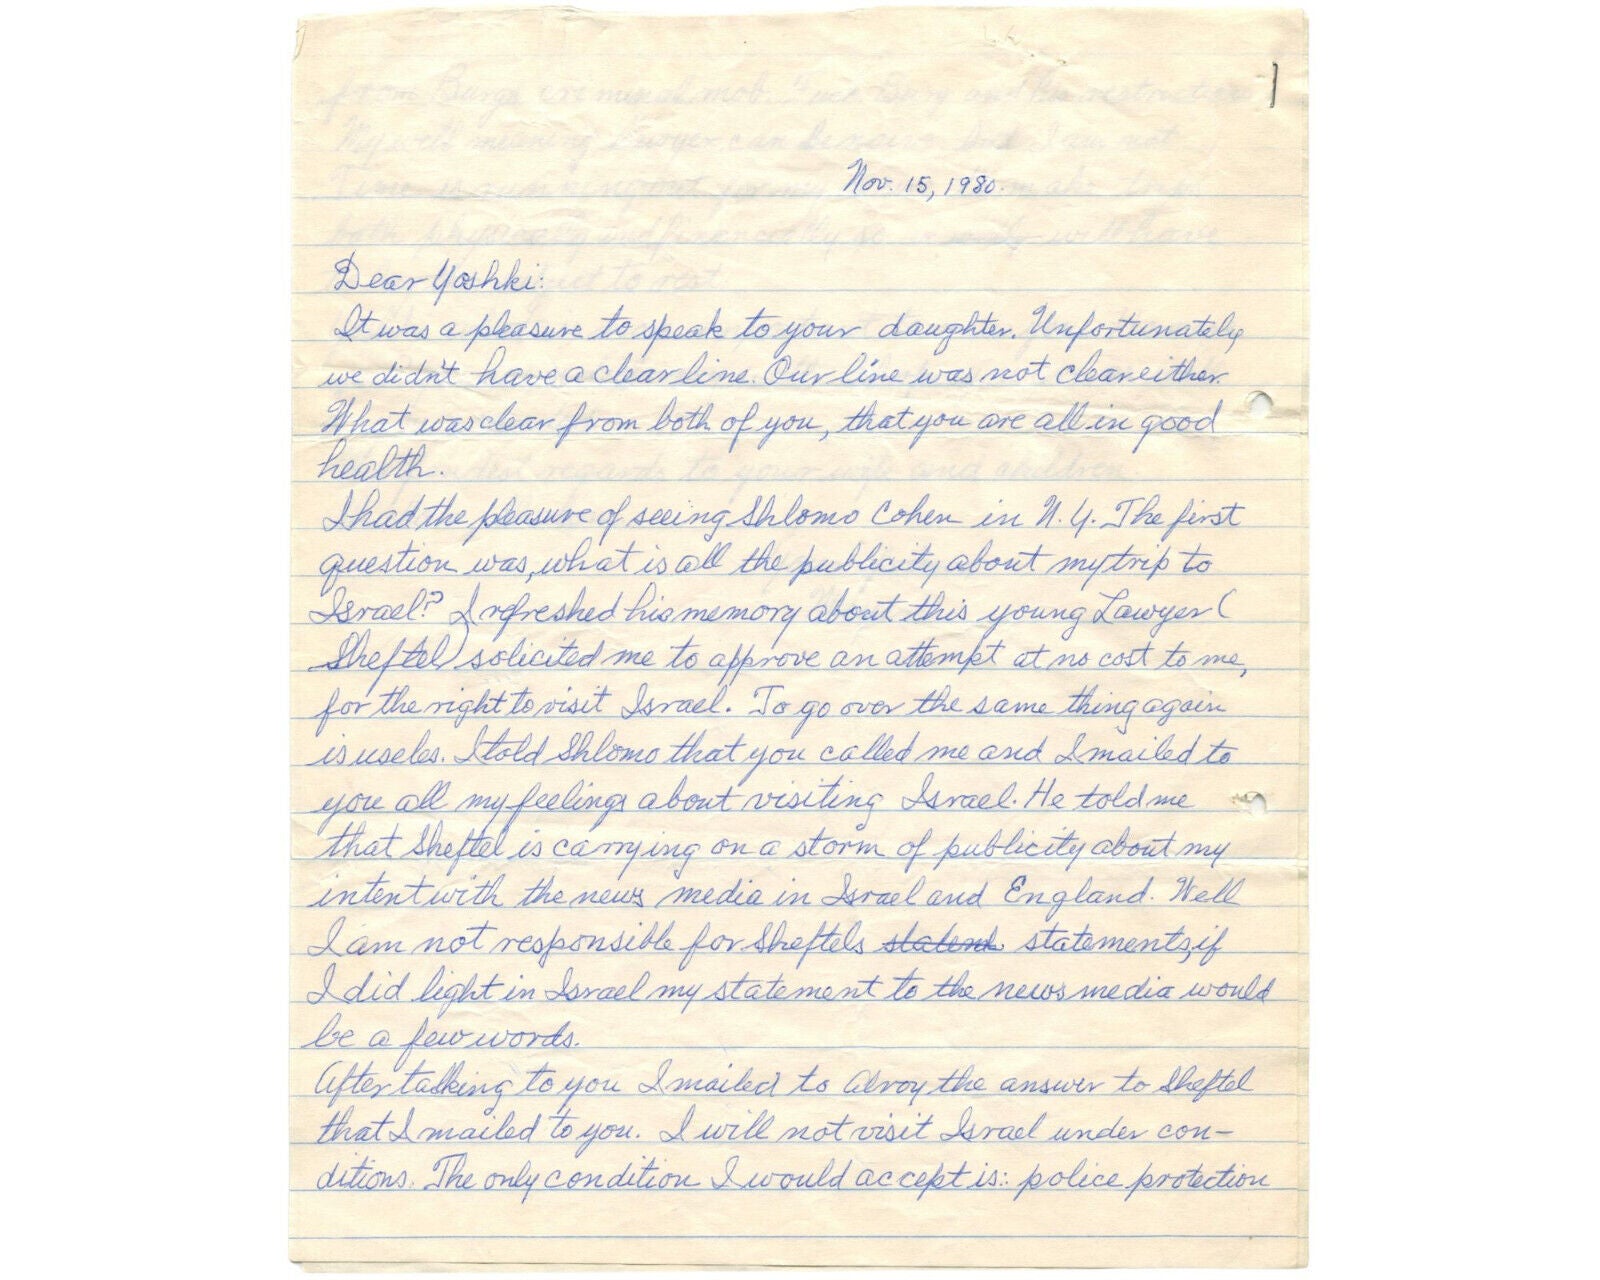 1
Nov. 15, 1980.
Dear Yoshki:
It was a pleasure to speak to your daughter. Unfortunately
we didn't have a clear line. Our line was not clear either.
What was clear from both of you, that you are all in good
health.
I had the pleasure of seeing Shlomo Cohen in N.Y. The first
question was, what is all the publicity about my trip to
Israel? I refreshed his memory about this young Lawyer (
Sheftel) solicited me to approve an attempt at no cost to me,
for the right to visit Israel. To go over the same thing again
is useles. I told Shlomo that you called me and I mailed to
you all my feelings about visiting Israel. He told me
that Sheftel is carrying on a storm of publicity about my
intent with the news media in Israel and England. Well
I am not responsible for Sheftels statements, if
I did light in Israel my statement to the news media would
be a few words.
After talking to you I mailed to Alroy the answer to Sheftel
that I mailed to you. I will not visit Israel under con-
ditions. The only condition I would accept is: police protection